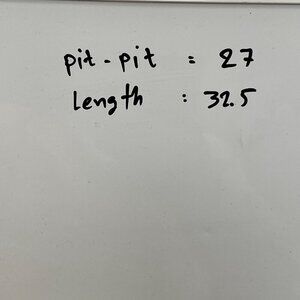 pit - pit : 27
Length : 32.5